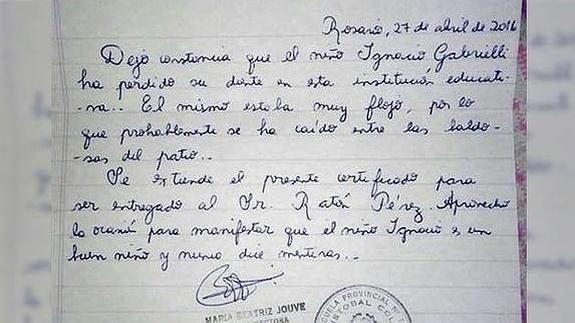 Rosario, 27 de abril de 2016
Dejo constancia que el niño Ignacio Gabrielli
ha perdido su diente en esta institución educati-
-va.. El mismo estaba muy flojo, por lo
que probablemente se ha caído entre las baldo-
-sas del patio..
Se extiende el presente certificado para
ser entregado al Sr. Ratón Pérez. Aprovecho
la ocasión para manifestar que el niño Ignacio es un
buen niño y nunca dice mentiras..
MARIA BEATRIZ JOUVE
ESCUELA PROVINCIAL N°
CRISTOBAL COL